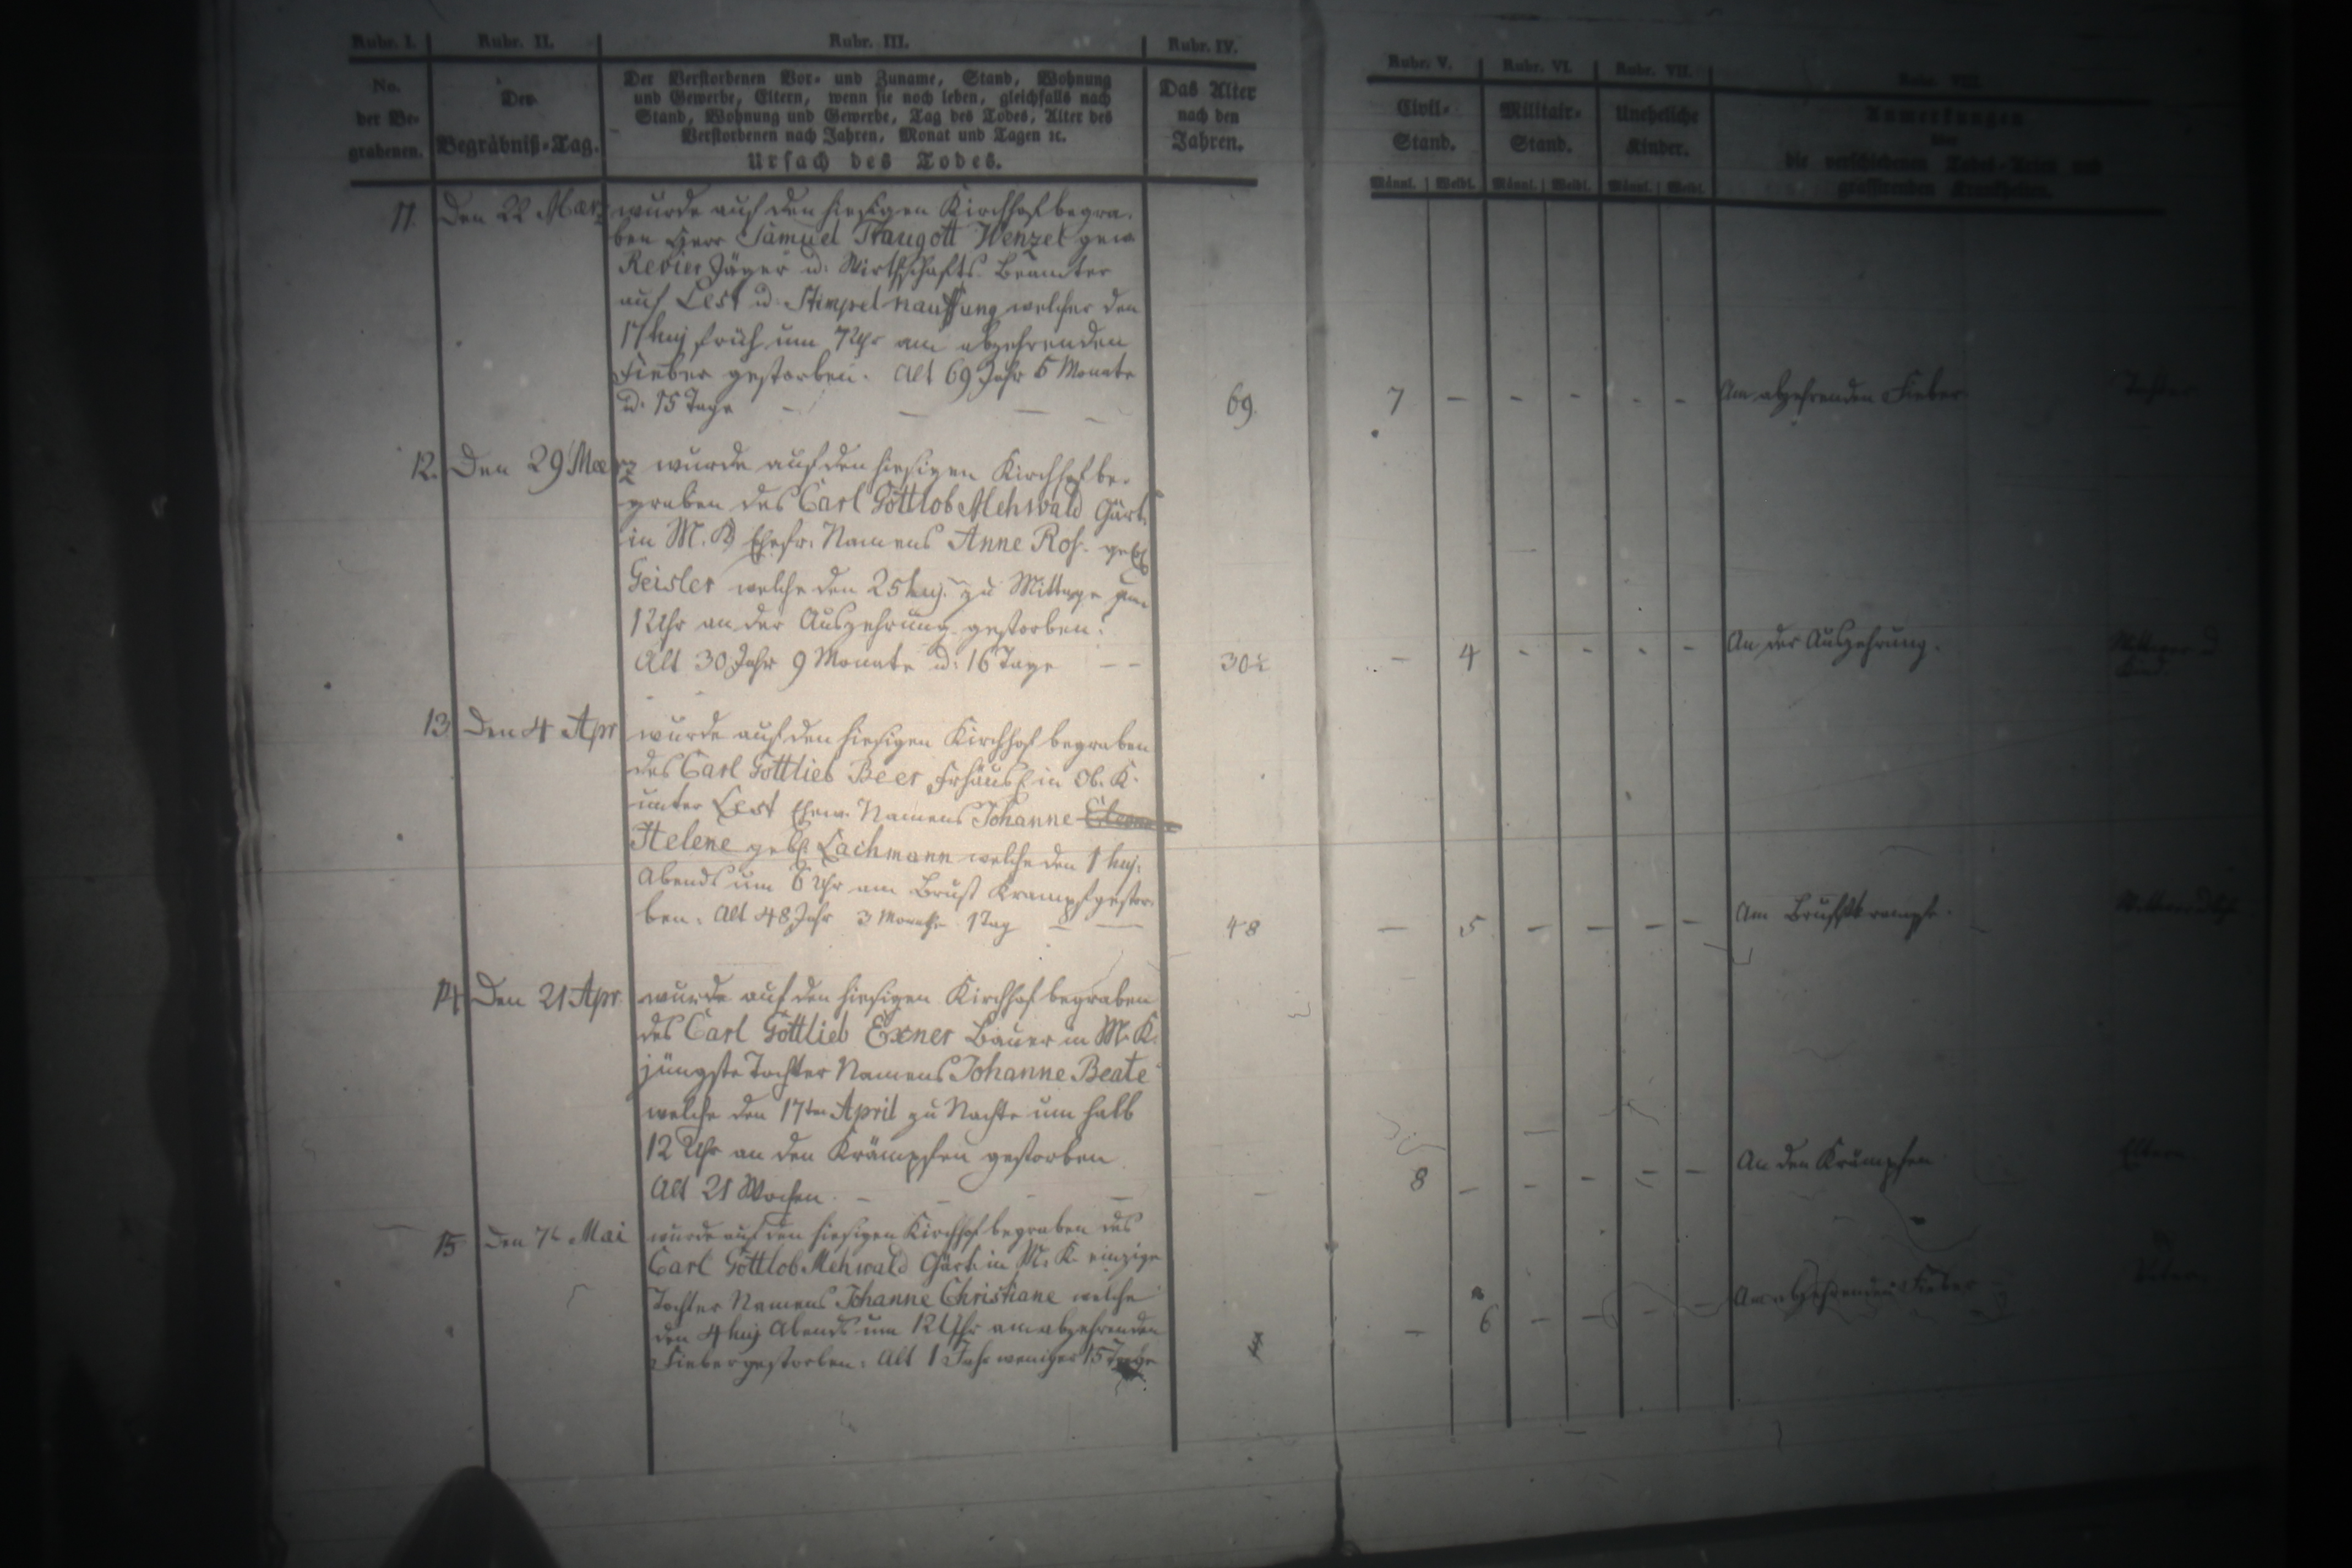 Rubr. I. Rubr. II. Rubr. III. Rubr. IV. Rubr. V. Rubr. VI. Rubr. VII. Rubr. VIII.
No. der Be- grabenen.
Der Begräbniß-Tag.
Der Verstorbenen Vor- und Zuname, Stand, Wohnung
und Gewerbe, Eltern, wenn sie noch leben, gleichfalls nach
Stand, Wohnung und Gewerbe, Tag des Todes, Alter des
Verstorbenen nach Jahren, Monat und Tagen ꝛc.
Ursach des Todes.
Das Alter
nach den
Jahren.
Civil-
Stand.
Militair-
Stand.
Uneheliche
Kinder.
Anmerkungen
über
die verschiedenen Todes-Arten und
grassirenden Krankheiten.
Männl. Weibl. Männl. Weibl. Männl. Weibl.
11. Den 22 März wurde auf den hiesigen Kirchhof begra-
ben Herr Samuel Traugott Wenzel gew
Revier Jäger u. Wirthschafts Beamter
auf Lest u. Stimpel Kauffung welcher den
17 huj früh um 7 Uhr am abzehrenden
Fieber gestorben. Alt 69 Jahr 5 Monate
u. 15 Tage 69. 7 - - - - - Am abzehrenden Fieber
12. Den 29 Maerz wurde auf den hiesigen Kirchhof be-
graben des Carl Gottlob Mehwald Gärt.
in M. K. Ehefr. Namens Anne Ros. geb.
Geisler welche den 25 huj. zu Mittage um
12 Uhr an der Auszehrung gestorben.
Alt 30 Jahr 9 Monate u. 16 Tage - - 30 - 4 - - - - An der Auszehrung.
13 Den 4 Apr wurde auf den hiesigen Kirchhof begraben
des Carl Gottlieb Beer Frhäusl. in Ob. K.
unter Lest Ehew. Namens Johanne
Helene geb. Lachmann welche den 1 huj.
Abends um 6 Uhr am Brust Krampf gestor-
ben. Alt 48 Jahr 3 Monathe 1 Tag 48 - 5 - - - - Am Brustkrampfe.
14 Den 21 Apr. wurde auf den hiesigen Kirchhof begraben
des Carl Gottlieb Exner Bauer in M. K.
jüngste Tochter Namens Johanne Beate
welche den 17ten April zu Nachts um halb
12 Uhr an den Krämpfen gestorben
Alt 21 Wochen. - 8 - - - - - An den Krämpfen Eltern
15 Den 7t Mai wurde auf den hiesigen Kirchhof begraben des
Carl Gottlob Mehwald Gärt. in M. K. einzige
Tochter Namens Johanne Christiane welche
den 4 huj Abends um 12 Uhr am abzehrenden
Fieber gestorben. Alt 1 Jahr weniger 15 Tage - 6 - - - - Am abzehrenden Fieber Vater